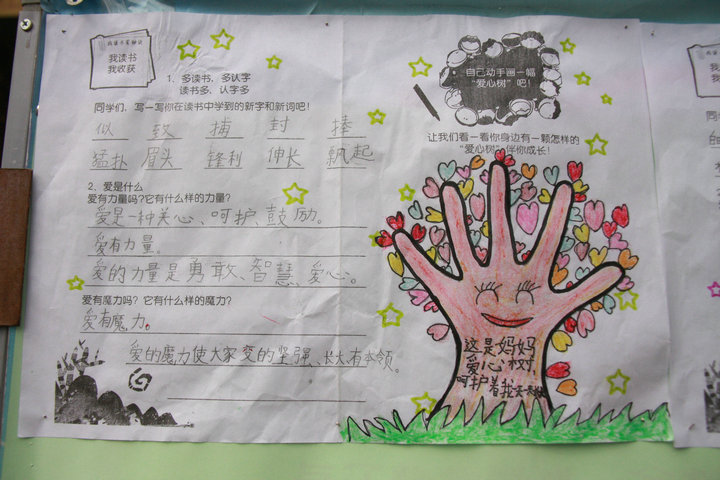 我读书
我收获
1、多读书、多认字
读书多、认字多
同学们，写一写你在读书中学到的新字和新词吧！
似 致 捕 封 捧
猛扑 眉头 锋利 伸长 飘起
2、爱是什么
爱有力量吗?它有什么样的力量?
爱是一种关心、呵护、鼓励。
爱有力量。
爱的力量是勇敢、智慧、爱心。
爱有魔力吗？它有什么样的魔力?
爱有魔力。
爱的魔力使大家变的坚强、长大有本领。
自己动手画一幅
“爱心树”吧！
让我们看一看你身边有一颗怎样的
“爱心树”伴你成长！
这是妈妈
爱心树!
呵护着我